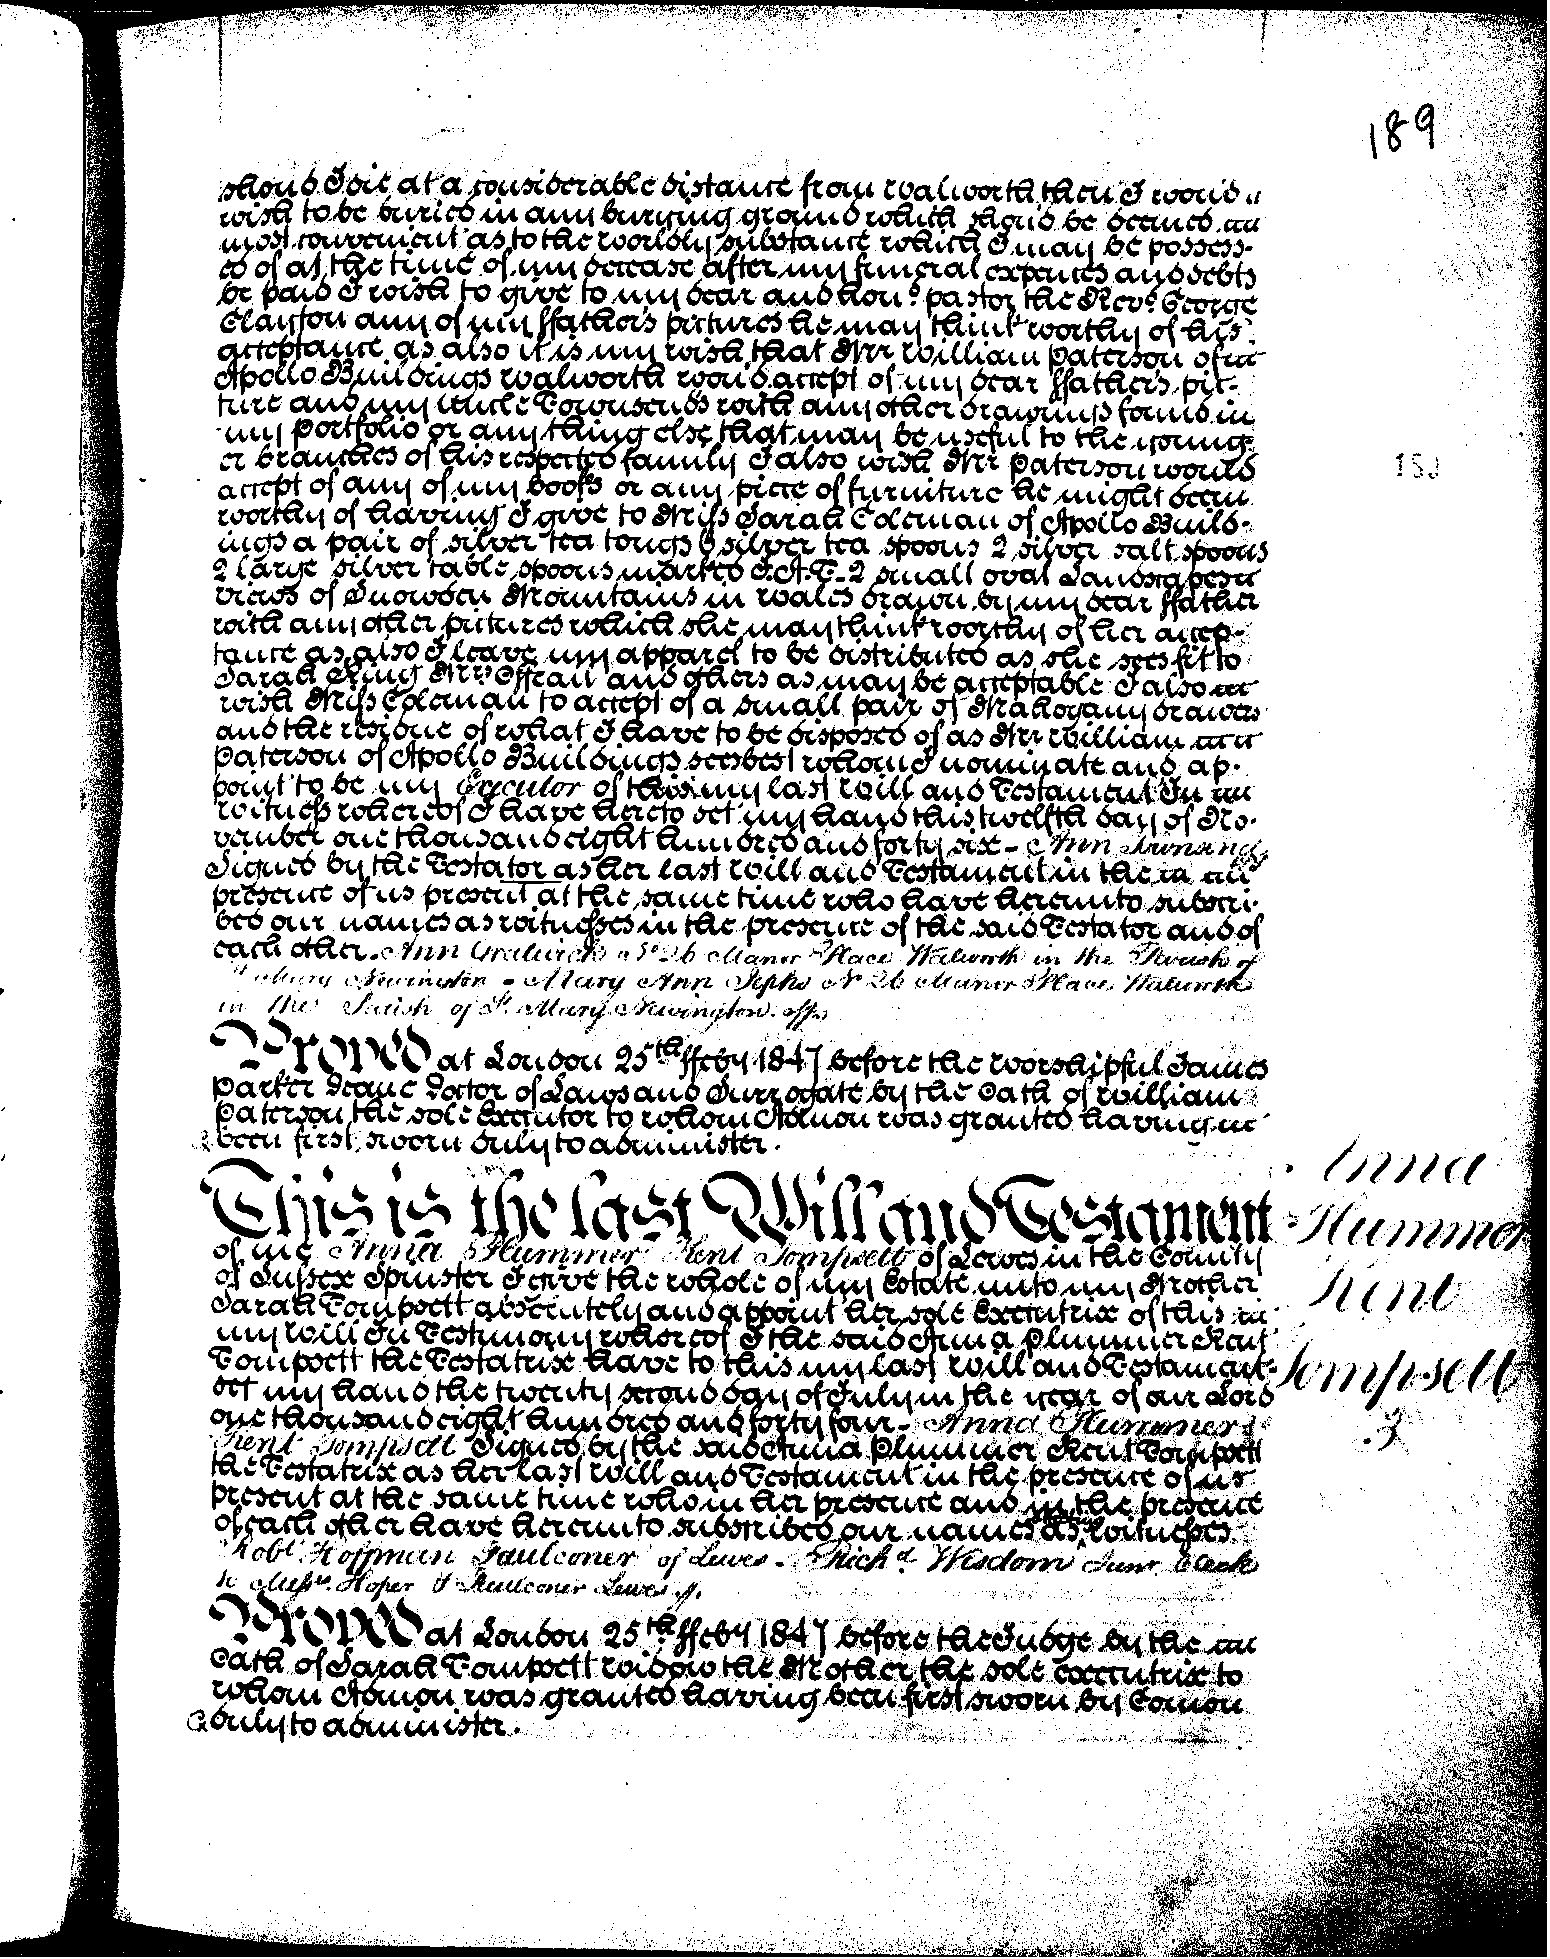 189
should I die at a considerable distance from Walworth then I would
wish to be buried in any burying ground which should be deemed
most convenient as to the worldly substance which I may be possess-
ed of at the time of my decease after my funeral expences and debts
be paid I wish to give to my dear and hond. pastor the Revd. George
Clayton any of my ffather's pictures he may think worthy of his
acceptance as also it is my wish that Mr William Paterson of
Apollo Buildings Walworth would accept of my dear ffather's pic-
ture and my Uncle Townsend's with any other drawings found in
my portfolio or any thing else that may be useful to the young-
er branches of his respected family I also wish Mr Paterson would
accept of any of my books or any piece of furniture he might deem
worthy of having I give to Miss Sarah Coleman of Apollo Build-
ings a pair of silver tea tongs 6 silver tea spoons 2 silver salt spoons
2 large silver table spoons marked I.A.T - 2 small oval Landscapes
views of Snowden Mountains in Wales drawn by my dear ffather
with any other pictures which she may think worthy of her accep-
tance as also I leave my apparel to be distributed as she sees fit to
Sarah Mrs. and others as may be acceptable I also
wish Miss Coleman to accept of a small pair of Mahogany drawers
and the residue of what I have to be disposed of as Mr William
Paterson of Apollo Buildings sees best whom I nominate and ap-
point to be my Executor of this my last Will and Testament In
witness whereof I have hereto set my hand this twelfth day of No-
vember one thousand eight hundred and forty six - Ann
Signed by the Testator as her last Will and Testament in the
presence of us present at the same time who have hereunto subscri-
bed our names as witnesses in the presence of the said Testator and of
each other - Ann No. 26 Manor Place Walworth in the Parish of
Mary Newington - Mary Ann Jephs No 26 Manor Place Walworth
in the Parish of St. Mary Newington.
Proved at London 25th ffeby 1847 before the Worshipful James
Parker Deane Doctor of Laws and Surrogate by the Oath of William
Paterson the sole Executor to whom Admon was granted having
been first sworn duly to administer.
This is the last Will and Testament
of me Anna Plummer Kent Tompsett of Lewes in the County
of Sussex Spinster I give the whole of my Estate unto my Mother
Sarah Tompsett absolutely and appoint her sole Executrix of this
my Will In Testimony whereof I the said Anna Plummer Kent
Tompsett the Testatrix have to this my last Will and Testament
set my hand the twenty second day of July in the year of our Lord
one thousand eight hundred and forty four - Anna Plummer
Kent Tompsett Signed by the said Anna Plummer Kent Tompsett
the Testatrix as her last Will and Testament in the presence of us
present at the same time who in her presence and in the presence
of each other have hereunto subscribed our names as witnesses
Robt. Hoffman Faulconer of Lewes - Richd. Wisdom Junr Clerk
to Messrs. Hoper & Faulconer Lewes
Proved at London 25th ffeby 1847 before the Judge by the
Oath of Sarah Tompsett Widow the Mother the sole Executrix to
whom Admon was granted having been first sworn by Comon
duly to administer.
Anna
Plummer
Kent
Tompsett
3